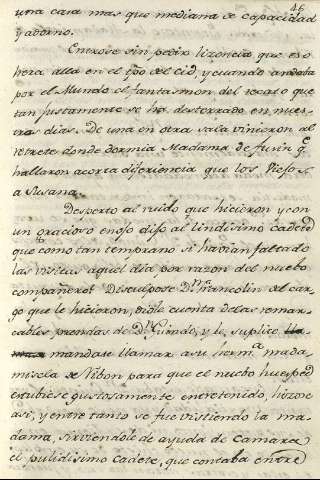 46
una casa mas que mediana de capacidad
y adorno.
Entrose sin pedir lizencia que eso
hera allá en el tpo del Cid, y cuando andaba
por el Mundo el fantasmon del recato que
tan justamente se ha desterrado en nues-
tros dias. De una en otra sala vinieron al
retrete donde dormia Madama de
hallaron acorta diferiencia que los Viejos
a Susana.
Desperto al ruido que hicieron y con
un gracioso enojo dijo al lindisimo cadete
que como tan temprano si havian faltado
las visitas aquel dia por razon del nuebo
compañero? Disculpose Dn Francolin del car-
go que le hicieron, diole cuenta delas remar-
cables prendas de Dn Guindo, y le suplicó
mandase llamar asu herma. mada-
misela de Nibon para que el nuebo huesped
estubiese gustosamente entretenido, hizose
asi, y entre tanto se fue vistiendo la ma-
dama, sirviendole de ayuda de Camara
el pulidisimo Cadete, que contaba entre